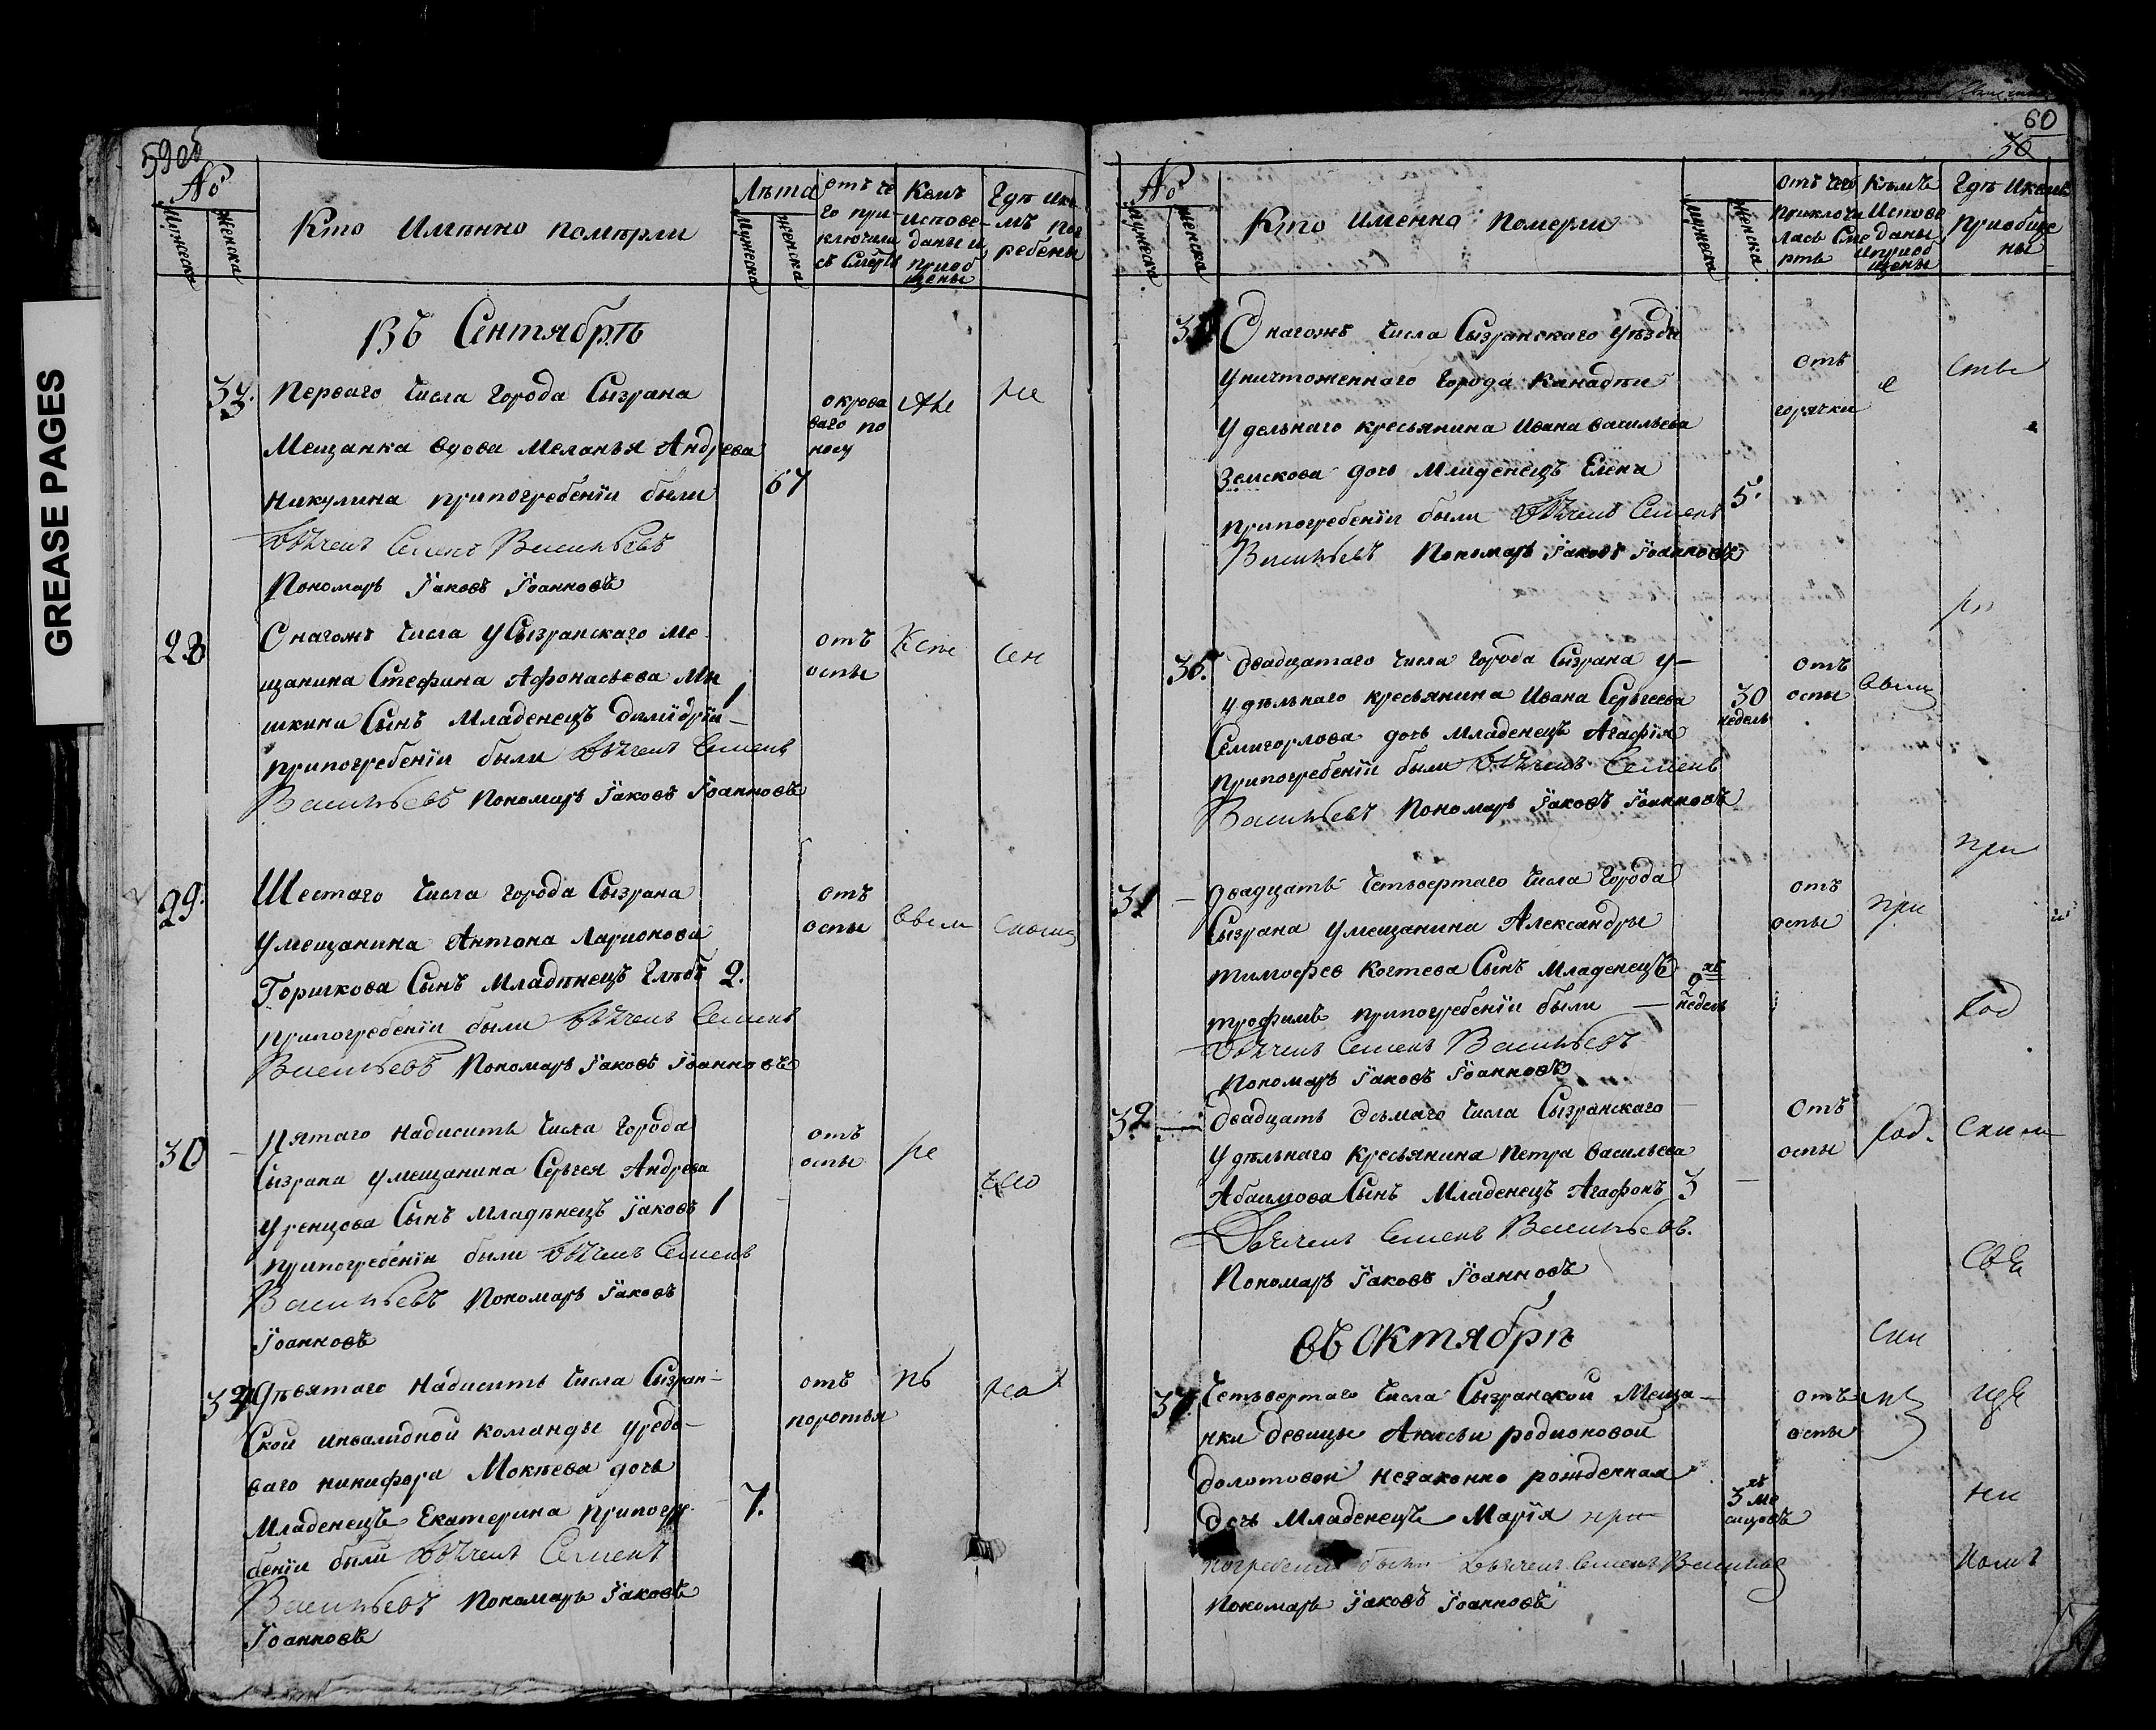 GREASE PAGES
59об
№
Мужеска
Женска
Кто Имѣнно помѣрли
Лѣта
Мужеска
Женска
отъ че
го при
ключила
сь смерть
Кемъ
испове
даны и
приоб
щены
Гдѣ
ребены
Въ Сентябрѣ
33.
Перваго числа города Сызрана
Мещанка вдова Меланья Андрева
никулина припогребенїи были
Дьячекъ Семенъ Васильевъ
Пономарь Їаковъ Їоанновъ
67
окрова
ваго по
носу
28
Онагожъ числа у Сызранскаго ме
щанина Стефана Афонасьева Мя
шкина Сынъ Младенецъ
припогребенїи были Дьячекъ Семенъ
Васильевъ Пономарь Їаковъ Їоанновъ
1
отъ
оспы
29.
Шестаго числа города Сызрана
умещанина Антона Ларионова
Горшкова Сынъ Младѣнецъ Глѣбъ
припогребенїи были Дьячекъ Семенъ
Васильевъ Пономарь Їаковъ Їоанновъ
2.
отъ
оспы
30
Пятаго надисить числа города
Сызрана умещанина Сергея Андрева
Уренцова Сынъ Младѣнецъ Їаковъ
припогребенїи были Дьячекъ Семенъ
Васильевъ Пономарь Їаковъ
Їоанновъ
1
отъ
оспы
34
Дѣвятаго надисить числа Сызран-
ской инвалидной команды
ваго никифора Мокѣева дочь
Младенецъ Екатерина припогре
бенїи были Дьячекъ Семенъ
Васильевъ Пономарь Їаковъ
Їоанновъ
7.
отъ
поротья
60
30
№
Мужеска
Женска
Кто именно померли
Мужеска
Женска
отъ чего
приключи
лась Сме
рть
Кѣмъ
Испове
даны
иприоб
щены
Гдѣ Икемъ
Приобще
ны
Онагожъ числа Сызранскаго уѣзда
уничтоженнаго города Канадѣи
удельнаго кресьянина Ивана васильева
Земскова дочь младенецъ Елена
припогребенїи были Дьячекъ Семенъ
Васильевъ Пономарь Їаковъ Їоанновъ
5.
отъ
горячки
36.
двадцатаго числа города Сызрана у-
удѣльнаго кресьянина Ивана Сергеева
Семигорлова дочь младенецъ Агафїя
припогребенїи были Дьячекъ Семенъ
Васильевъ Пономарь Їаковъ Їоанновъ
30
недель
отъ
оспы
31
двадцать четьвертаго числа города
Сызрана умещанина Александры
тимофев Когтева Сынъ Младенецъ
трофимъ припогребенїи были
Дьячекъ Семенъ Васильевъ
Пономарь Їаковъ Їоанновъ
2хъ
недель
отъ
оспы
32
двадцать осьмаго числа Сызранскаго
удѣльнаго кресьянина Петра васильева
Абаимова Сынъ Младенецъ Агафонъ
Дьячекъ Семенъ Васильевъ.
Пономарь Їаковъ Їоанновъ
3
отъ
оспы
въ Октябрѣ
37
Четьвертаго числа Сызранской Меща-
нки девицы Анисьи родионовой
долотовой незаконно рожденная
дочь Младенецъ Марїя при
погребенїи были Дьячекъ Семенъ Васильев
Пономарь Їаковъ Їоанновъ
3хъ ме
сицовъ
отъ
оспы